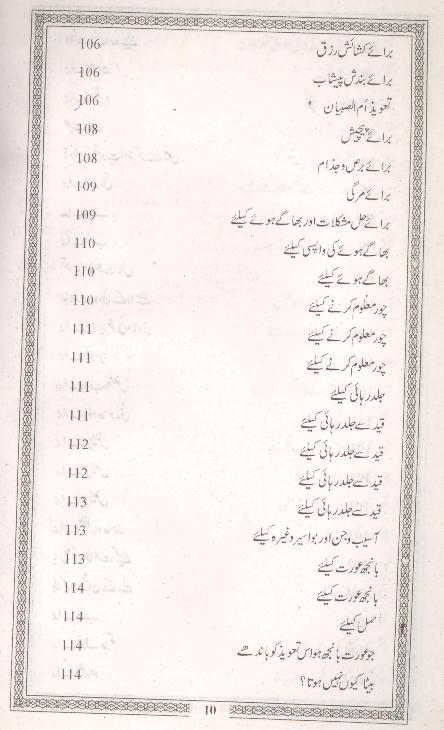 برائے کشائش رزق 106
برائے بندش پیشاب 106
تعویذ اُم الصبیان 106
برائے پیچش 108
برائے برص و جذام 108
برائے مرگی 109
برائے حل مشکلات اور بھاگے ہوئے کیلئے 109
بھاگے ہوئے کی واپسی کیلئے 110
بھاگے ہوئے کیلئے 110
چور معلوم کرنے کیلئے 110
چور معلوم کرنے کیلئے 111
چور معلوم کرنے کیلئے 111
جلد رہائی کیلئے 111
قید سے جلد رہائی کیلئے 111
قید سے جلد رہائی کیلئے 112
قید سے جلد رہائی کیلئے 112
قید سے جلد رہائی کیلئے 113
آسیب و جن اور بواسیر وغیرہ کیلئے 113
بانجھ عورت کیلئے 113
بانجھ عورت کیلئے 114
حمل کیلئے 114
جو عورت بانجھ ہو اس تعویذ کو باندھے 114
بیٹا کیوں نہیں ہوتا؟ 114
10